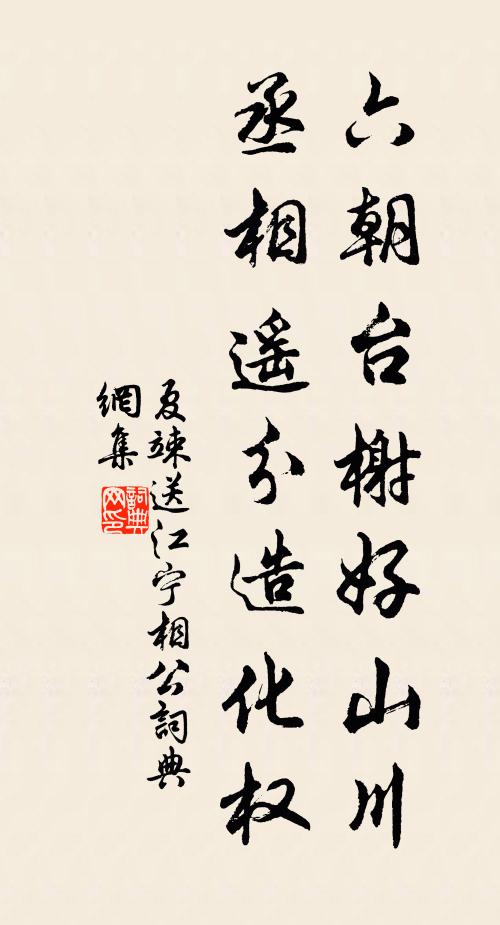 六朝台榭好山川
丞相遥分造化权
夏竦送江宁相公詞典
網集
詞典
网印